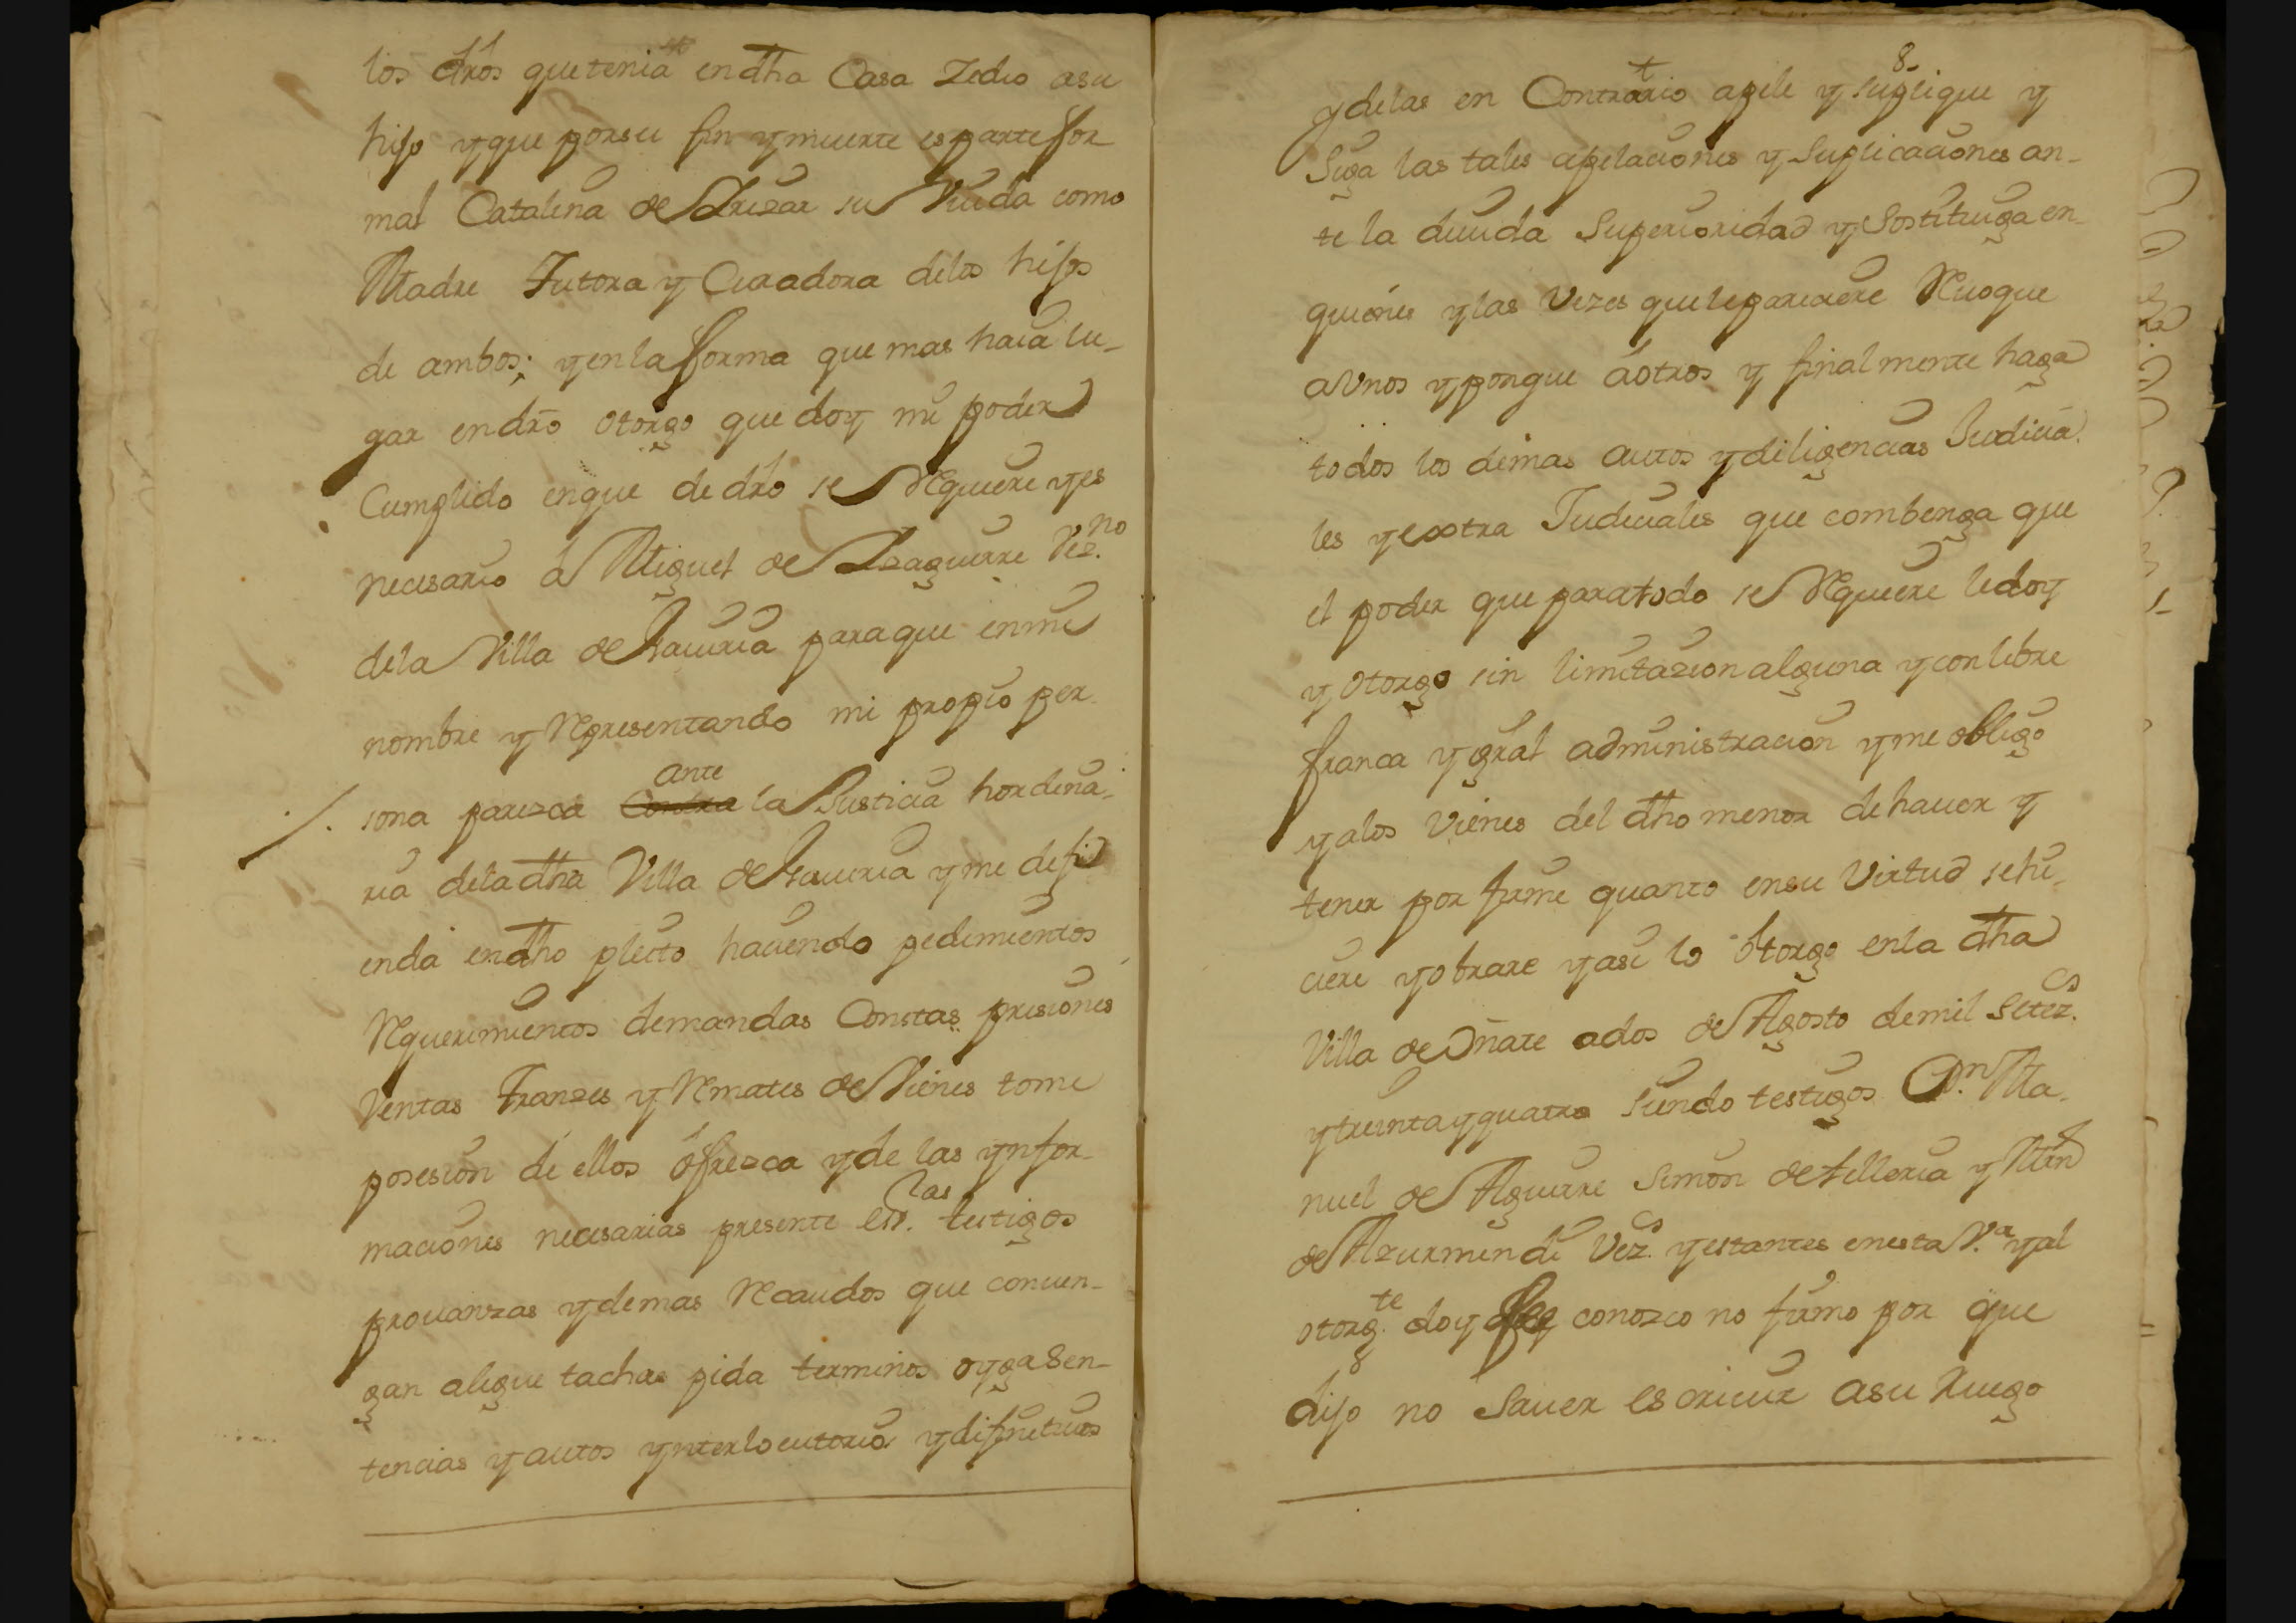 los dr̃os que tenia en dh̃a Casa Zedio asu
hijo y que por su fin y muerte es parte for
mal Catalina de su Viuda como
Madre Tutora y Curadora delos hijos
de ambos; y en la forma que mas haia lu-
gar en dr̃o otorgo que doy mi poder
Cumplido en que de dr̃o se Requiere y es
necesario á Miguel de Yzaguirre Vez.no
dela Villa de para que en mi
nombre y Representando mi propio per-
sona parezca Contra ante la Justicia hordina-
ria dela dh̃a Villa de y me defi
enda en dh̃o pleito haciendo pedimientos
Requerimientos demandas Constas prisiones
Ventas Tranzes y Rematis de Vienes tome
posesion de ellos ófrezca y de las ynfor-
maciones necesarias presente testigos
provanzas y demas Recaudos que conven-
gan alegue tachas pida terminos oyga Sen-
tencias y autos ynterlocutorio y difinitivos
8
y delas en Contrario apele y suplique y
Siga las tales apelaciones y Suplicaciones an-
te la duuida Superioridad y Sostituiga en
quienes y las Vezes que le pareciere Reuoque
a Vnos y pongue áotros y finalmente haga
todos los demas autos y diligencias Judicia
les y extra Judiciales que combenga que
el poder que para todo se Requiere le doy
y otorgo sin limitazion alguna y con libre
franca y gral administracion y me obligo
y alos Vienes del dh̃o menor de haver y
tener por firme quanto en su Virtud se hi-
ciere y obrare y asi lo otorgo en la dh̃a
Villa de Oñate ados de Agosto de mil Setez.cs
y treinta y quatro Siendo testigos D.n Ma-
nuel de Aguirre Simon de telleria y Mr̃n
de Azurmendi Vez.s y estantes en esta V.a y al
otorg.te doy fee conozco no firmo por que
dijo no Saver escriuir asu Ruego